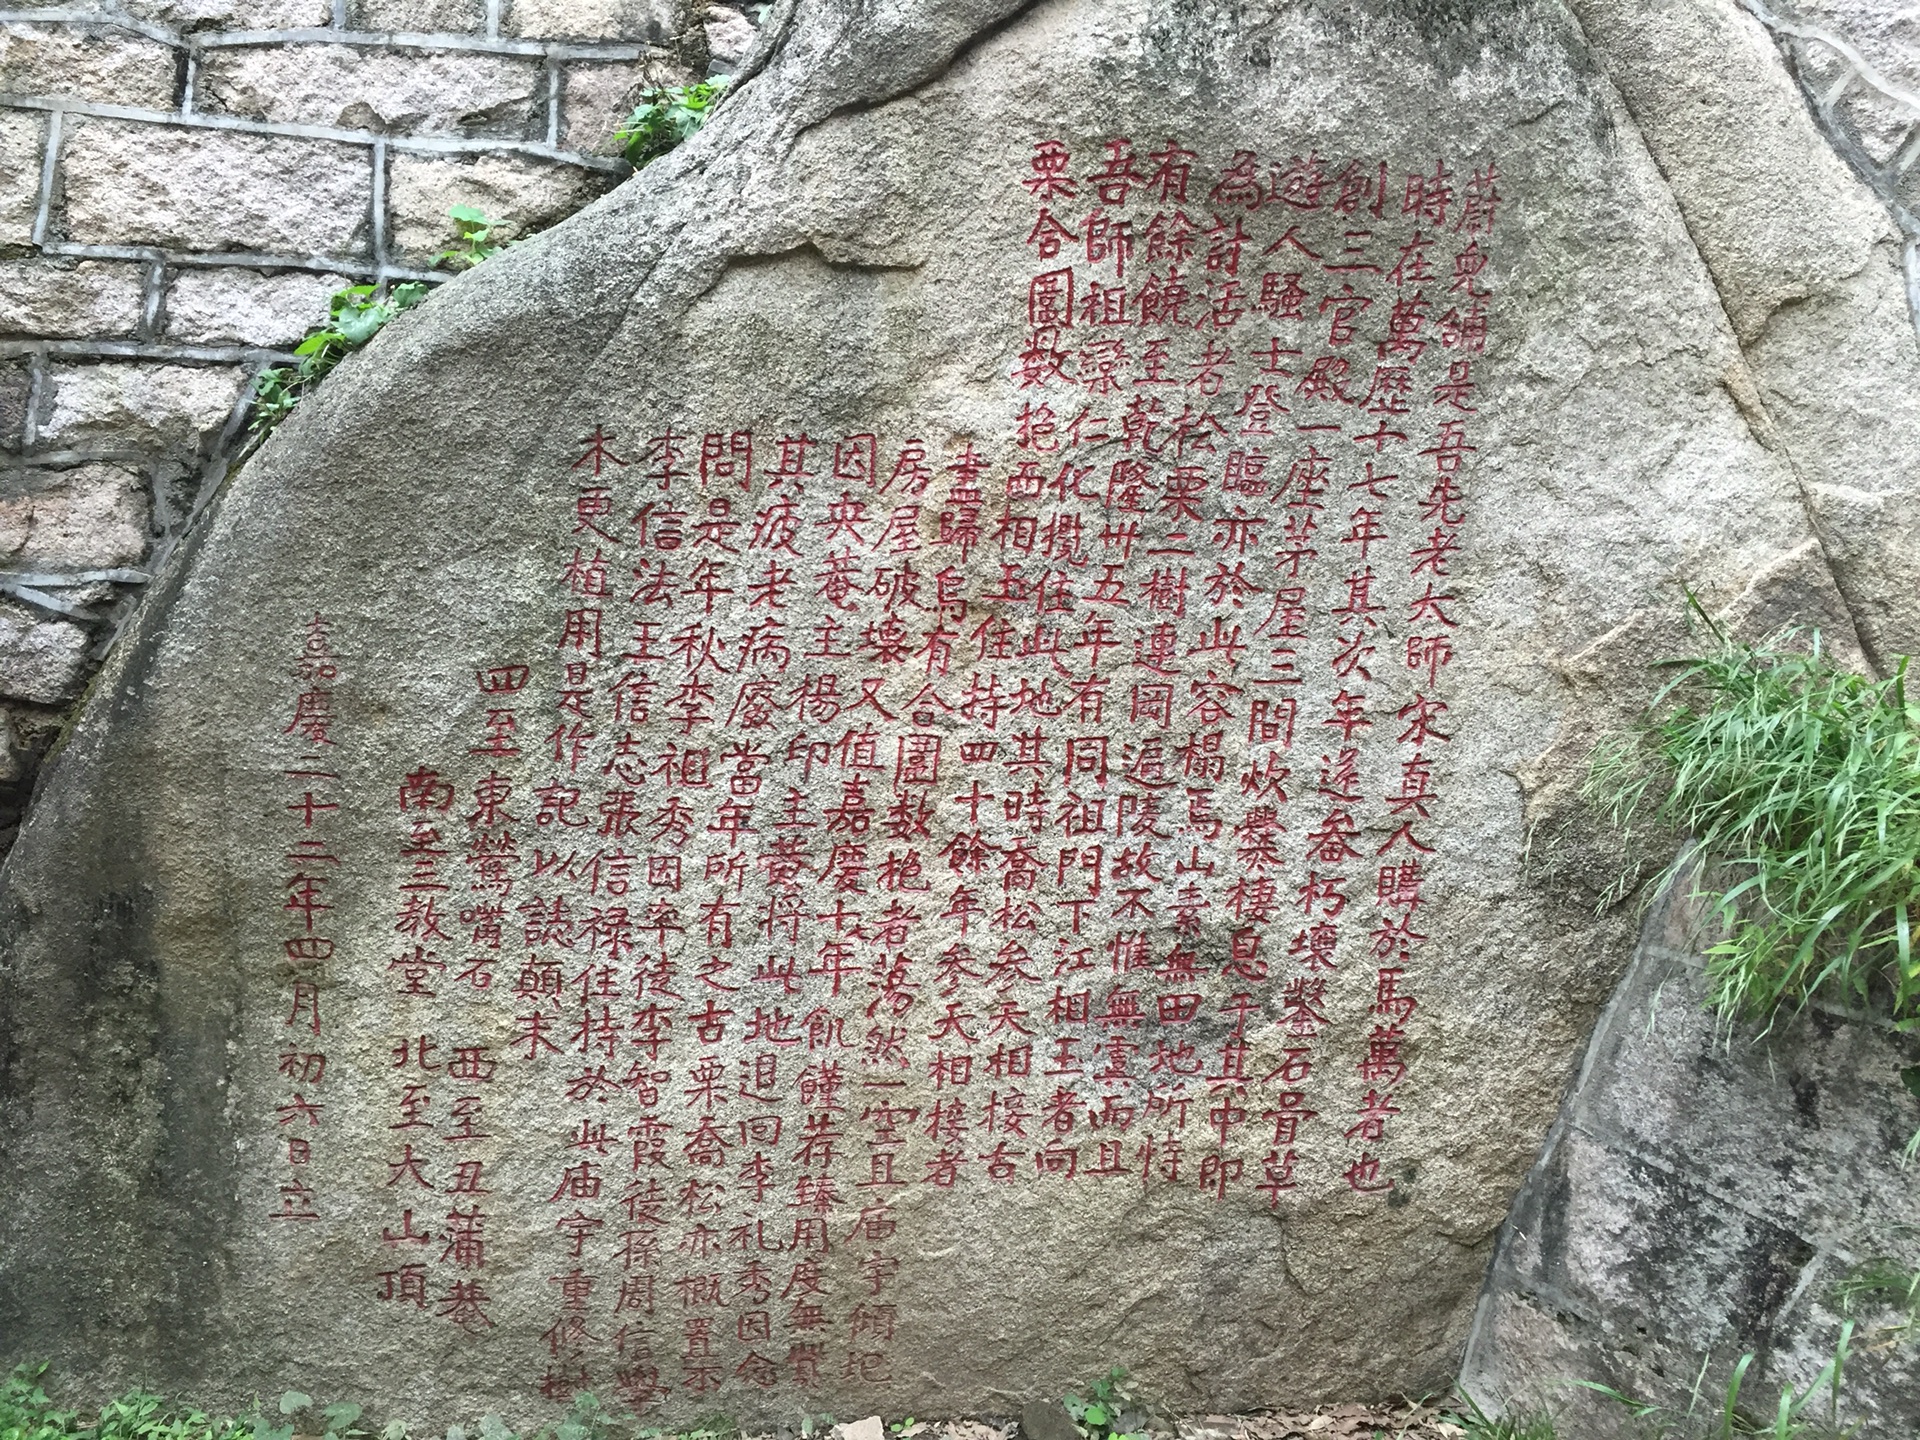 蔚皃鋪是吾先老大師宋真人購於馬萬者也
時在萬歷十七年其次年遂畚朽壤鑿石骨草
創三官殿一座茅屋三間炊爨棲息于其中即
遊人騷士登臨亦於此容榻焉山素無田地所恃
為計活者松栗二樹連岡遍陵故不惟無雲而且
有餘饒至乾隆卅五年有同祖門下江相玉者向
吾師祖欒仁化攬住此地其時喬松参天相接古
栗合圍数抱西相玉住持四十餘年参天相接者
盡歸烏有合圍数抱者荡然一空且庙宇傾圯
房屋破壞又值嘉慶十七年飢饉荐臻用度無貲
因央菴主楊印主黄将此地退回李礼秀因念
其疲老病廢當年所有之古栗喬松亦概置不
問是年秋李祖秀因率徒李智霞徒孫周信學
李信法王信志張信禄住持於此庙宇重修樹
木更植用是作記以誌顛末
四至 東鶯嘴石 西至丑蒲巷
南至三教堂 北至大山頂
嘉慶二十二年四月初六日立